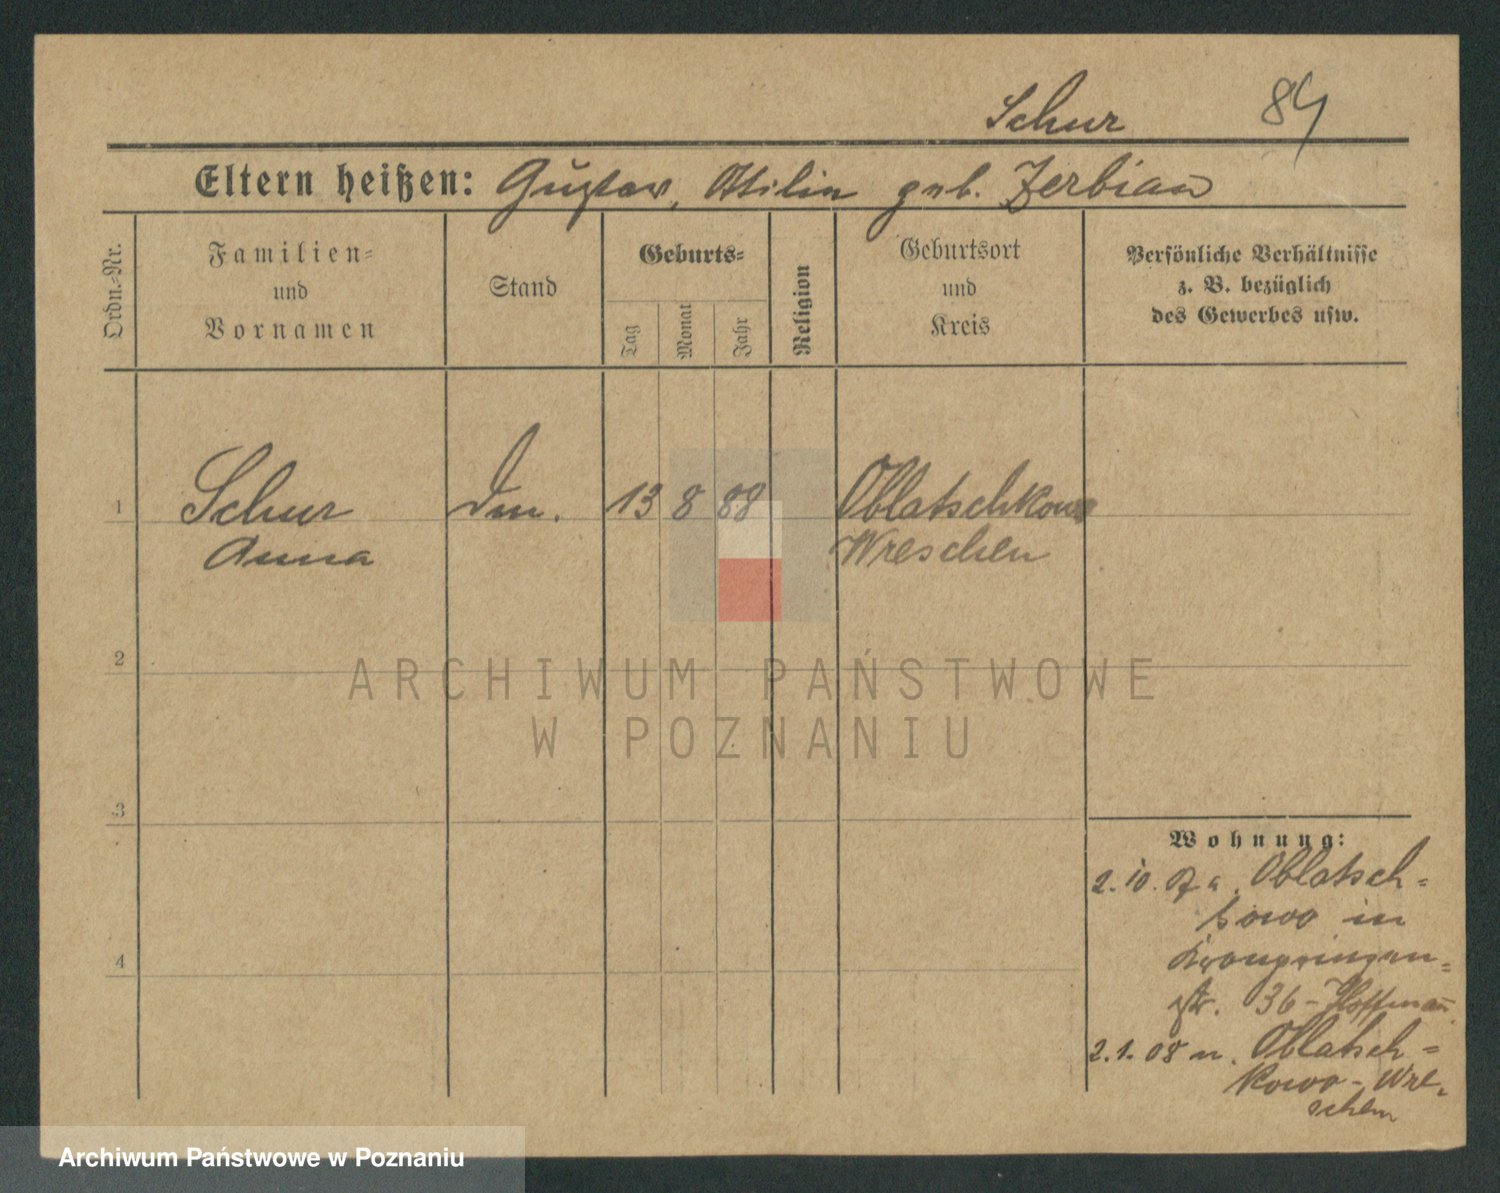 Schur 84
Eltern heißen: Gustav, Ottilie geb. Zerbian
Ordn.-Nr.
Familien-
und
Vornamen
Stand
Geburts-
Tag
Monat
Jahr
Religion
Geburtsort
und
Kreis
Persönliche Verhältnisse
z. B. bezüglich
des Gewerbes usw.
1 Schur 13 8 88 Oblatschkowo
Anna Wreschen
2
3
4
Wohnung:
2. 10. 07 a. Oblatsch-
kowo in
Kronprinzen-
str. 36 - Hoffmann
2. 1. 08 n. Oblatsch-
kowo - Wre-
schen
ARCHIWUM PAŃSTWOWE
W POZNANIU
Archiwum Państwowe w Poznaniu